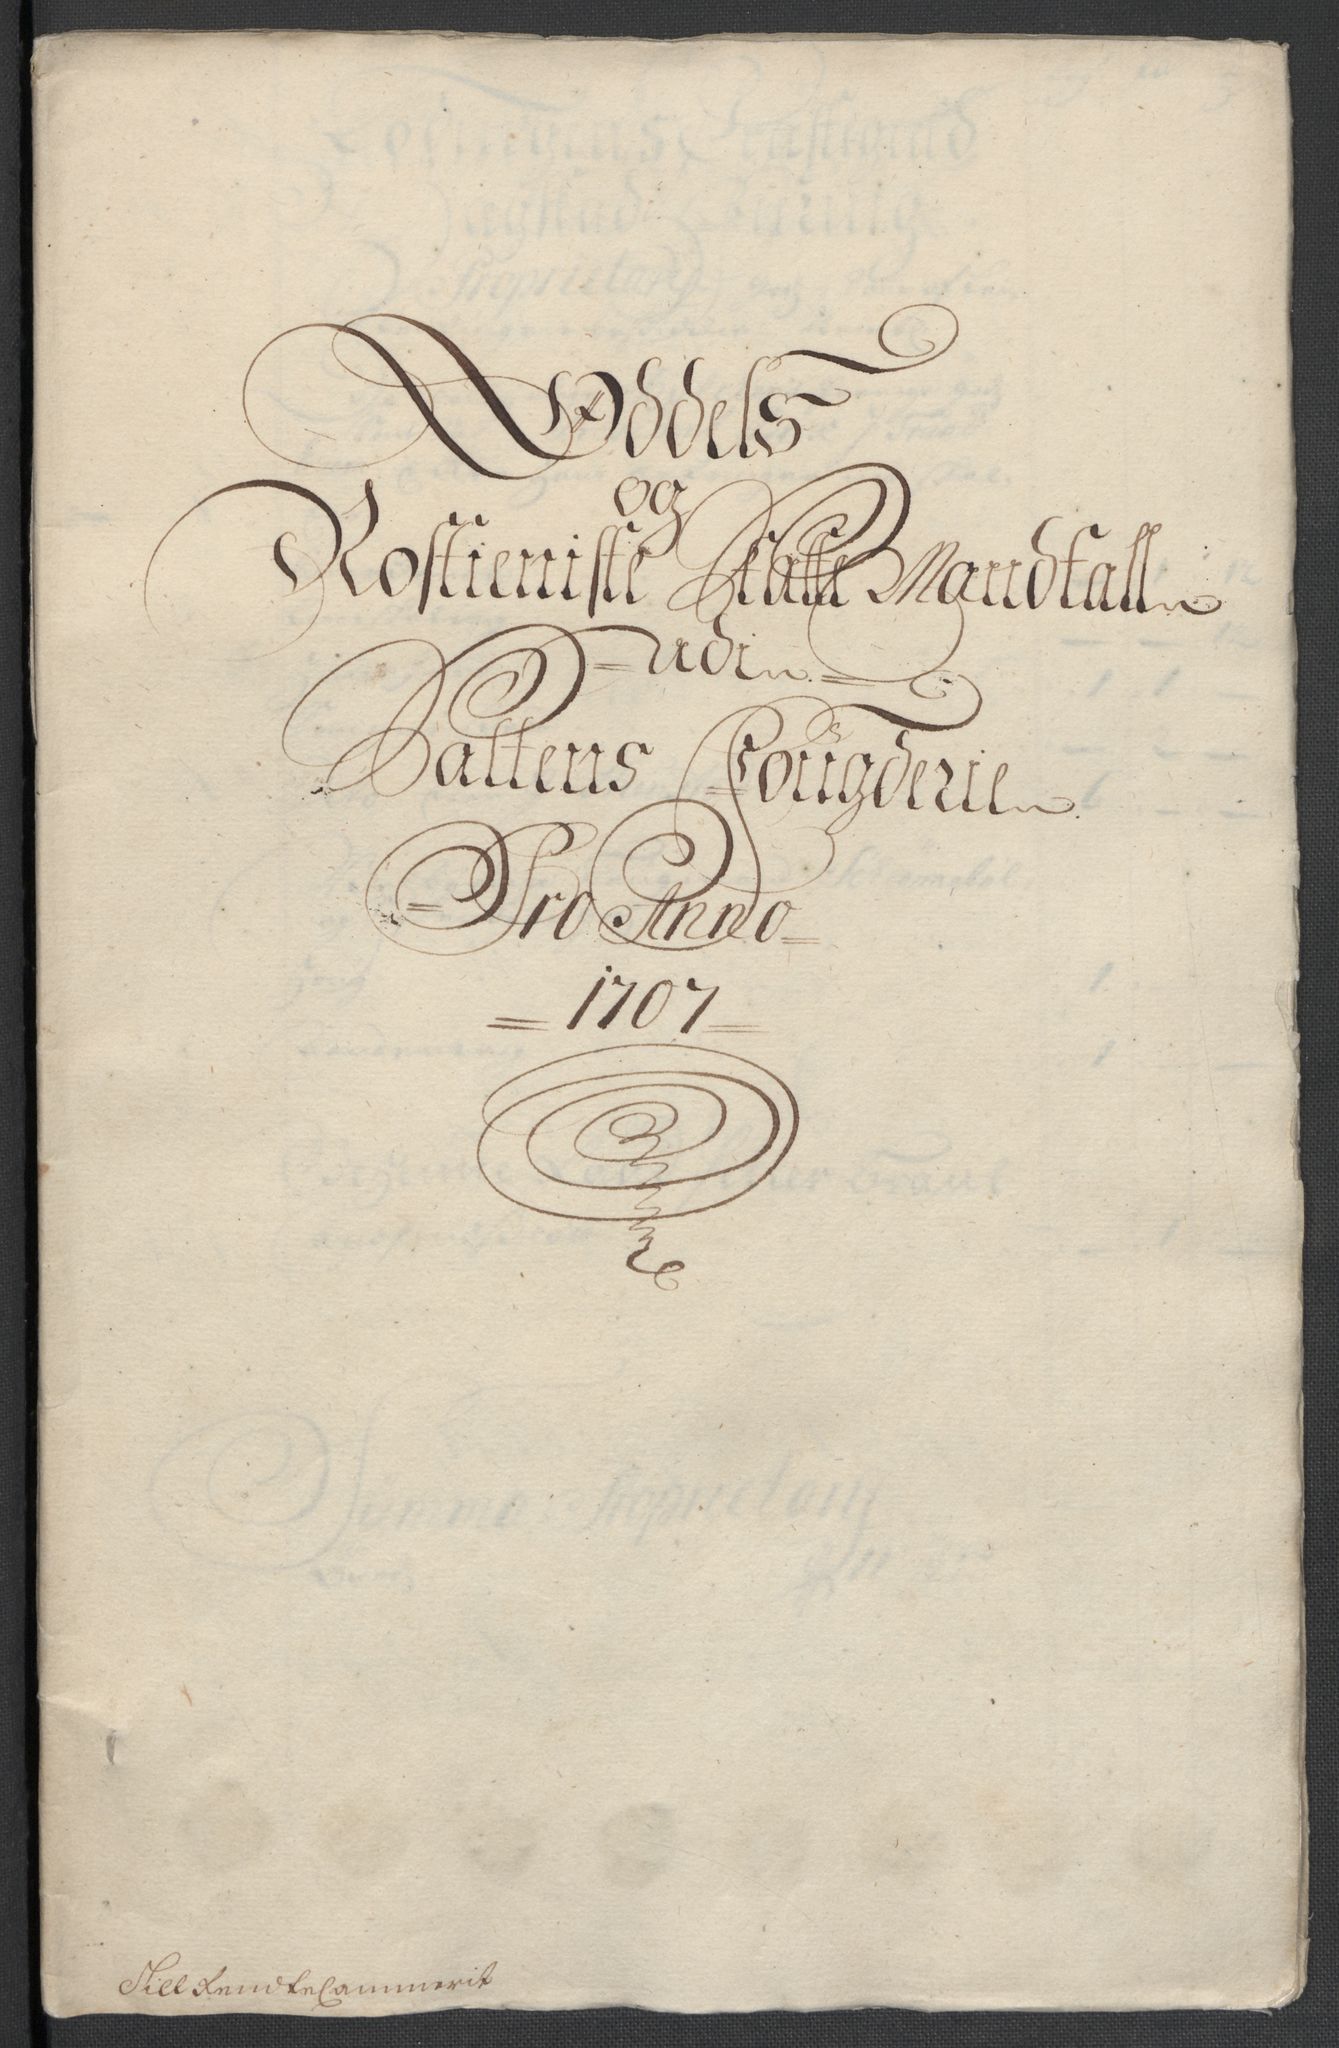 Oddels
og
Rostieniste Skatte Mandtall
udi
Saltens Fougderie
Pro Anno
1707
Till RendteCammerit